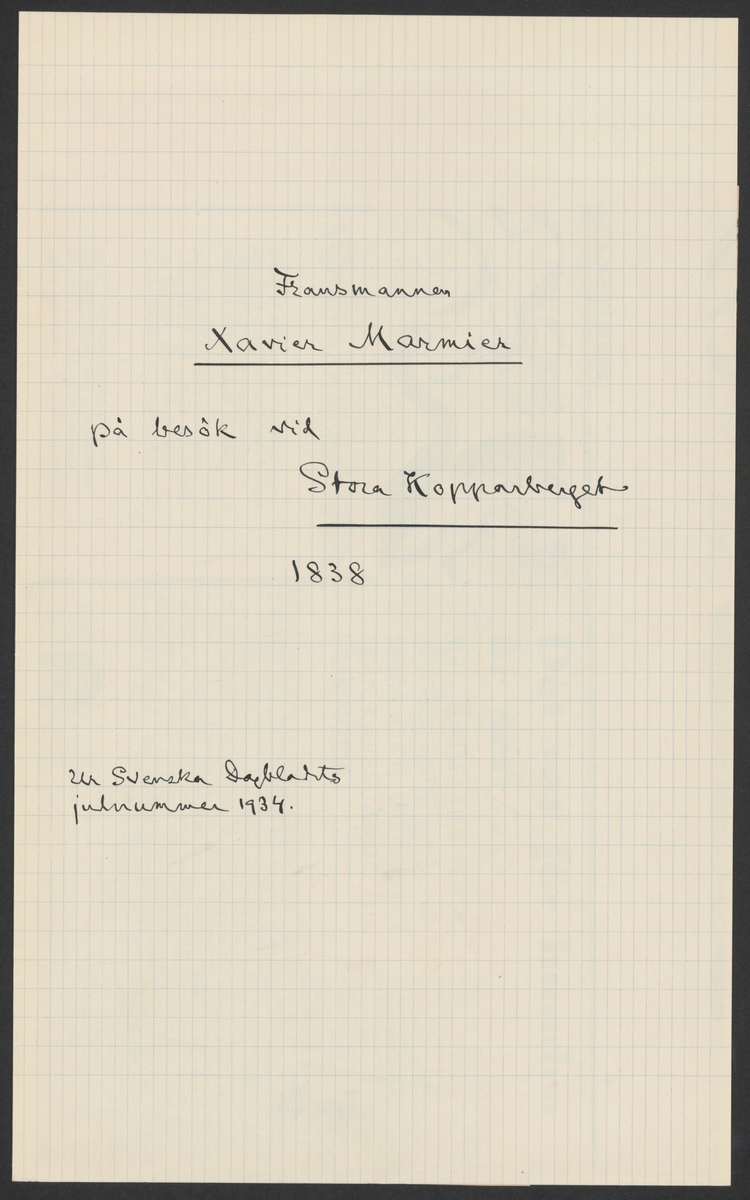 Fransmannen
Xavier Marmier
på besök vid
Stora Kopparberget
1838
Ur Svenska Dagbladets
julnummer 1934.